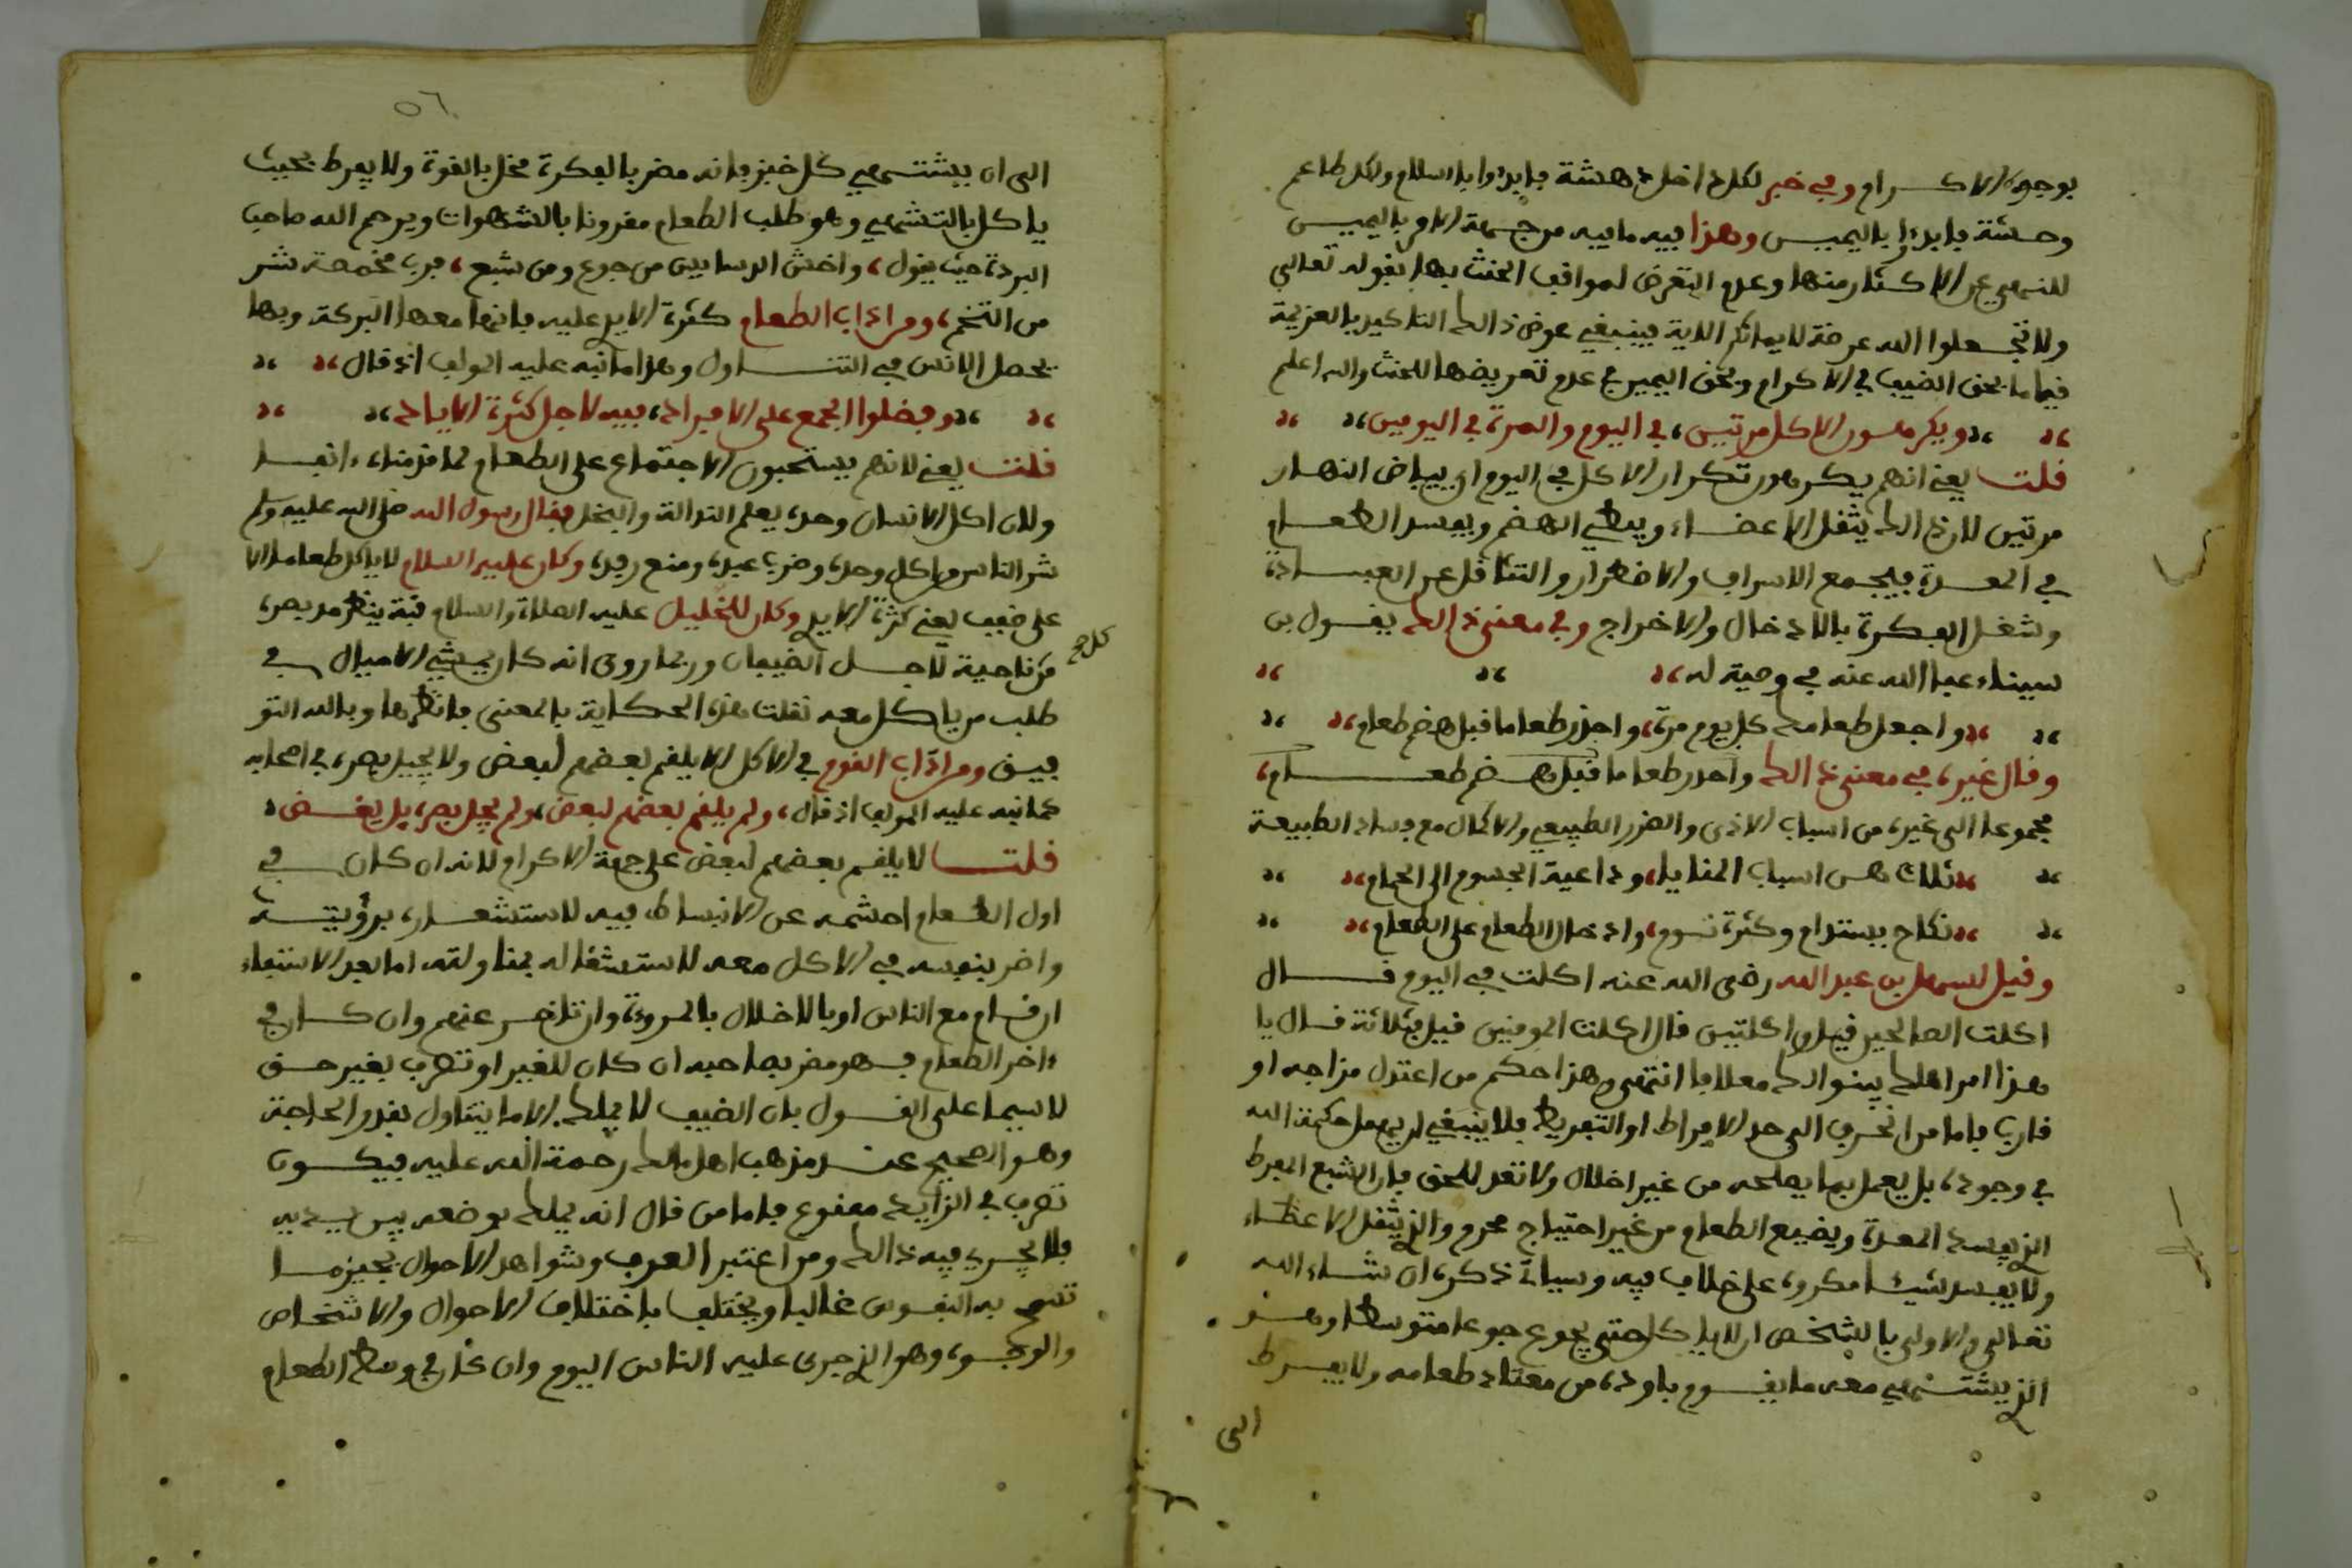 بوجوه الاكرام وفي خبر لكل داخل دهشة فابدءوا بالسلام ولكل طاعم
وحشة فابدءوا باليمين وهذا فيه ما فيه من جهة الامر باليمين
للنهي عن الاكثار منها وعدم التعرض لمواقف الحنث بها بقوله تعالى
ولا تجعلوا الله عرضة لايمانكم الاية فينبغي عوض ذالك التاكيد بالعزيمة
فيها ما بحق الضيف في الاكرام وبحق اليمين في عدم تعريضها للحنث والله اعلم
ويكرهون الاكل مرتين، في اليوم والمرة في اليومين
فلت يعني انهم يكرهون تكرار الاكل في اليوم اي بياض النهار
مرتين لان ذالك يثقل الاعضاء ويبطئ الهضم ويفسد الطعام
في المعدة فيجمع الاسراف والاضرار والتثاقل عن العبادة
وشغل الفكرة بالادخال والاخراج وفي معنى ذالك يقول بن
سيناء عفا الله عنه في وصية له
واجعل طعامك كل يوم مرة، واحذر طعاما قبل هضم طعام
وقال غيره في معنى ذالك واحذر طعاما قبل هضم طعام،
مجموعا الى غيره من اسباب الاذى والضرر الطبيعي والاكمال مع فساد الطبيعة
ثلاث هن اسباب المنايا، وداعية الجسوم الى الحمام
نكاح يستدام وكثرة نوم، وادخال الطعام على الطعام
وقيل لسهل بن عبد الله رضى الله عنه اكلت في اليوم قال
اكلت الصالحين قيل واكلتين قال اكلت المومنين قيل فثلاثة قال يا
هذا امر اهلك يبنوا لك معلفا انتهى وهذا حكم من اعتدل مزاجه او
قارب فاما من انحرف الى حد الافراط او التفريط فلا ينبغي ان يهمل حكمة الله
في وجوده بل يعمل بما يصلحه من غير اخلال ولا تعد للحق فان الشبع المفرط
الذي يفسد المعدة ويضيع الطعام من غير احتياج محرم والذي يثقل الاعضاء
ولا يفسد شيئا مكروه على خلاف فيه وسياتي ذكره ان شاء الله
تعالى والاولى بالشخص ان لا ياكل حتى يجوع جوعا متوسطا وهو
الذي يشتهي معه ما يقوم باوده من معتاد طعامه ولا يفرط
الى
٥٦
الى ان يشتهي كل خبز فانه مضر بالفكرة مخل بالقوة ولا يفرط بحيث
ياكل بالتشهي وهو طلب الطعام مقرونا بالشهوات ويرحم الله صاحب
البردة حيث يقول، واخش الدسايس من جوع ومن شبع، فرب مخمصة شر
من التخم، ومن اداب الطعام كثرة الايدي عليه فانها معها البركة وبها
يحصل الانس في التناول وهذا ما نبه عليه المولف اذ قال
وفضلوا الجمع على الافراد، فيه لاجل كثرة الاياد
فلت يعني لانهم يستحبون الاجتماع على الطعام لما قدمناه ءانفا
ولان اكل الانسان وحده يعلم النذالة والبخل فقال رسول الله صلى الله عليه وسلم
شر الناس من اكل وحده وضرب عبده ومنع رفده وكان عليه السلام لا ياكل طعاما الا
على ضفف يعني كثرة الايدي وكان للخليل عليه الصلاة والسلام قبة ينظر مد بصره
كل صح
من ناحية لاجل الضيفان وربما روى انه كان يمشي الاميال في
طلب من ياكل معه نقلت هذه الحكاية بالمعنى فانظرها وبالله التو
فيق ومن اداب القوم في الاكل الا يلقم بعضهم لبعض ولا يجيل بصره في اصحابه
كما نبه عليه المولف اذ قال، ولم يلقم بعضهم لبعض، ولم يجل بصره بل يغض
فلت لا يلقم بعضهم لبعض على جهة الاكرام لانه ان كان في
اول الطعام احشمه عن الانبساط فيه لاستشعاره برؤيته
واضر بنفسه في الاكل معه لاستشغاله بمناولته اما بعد الانتهاء
ان قام مع الناس او بالاخلال بالمروءة وان تاخر عنهم وان كان في
ءاخر الطعام فهو مضر بصاحبه ان كان للغير او تصرف بغير حق
لا سيما على القول بان الضيف لا يملك الا ما يتناول بقدر الحاجة
وهو الصحيح عند مذهب اهل مالك رحمة الله عليه فيكون
تصرف في الزايد ممنوع فاما من قال انه يملك بوضعه بين يديه
فلا يجري فيه ذالك ومن اعتبر العرف وشواهد الاحوال يجيز ما
تسمح به النفوس غالبا ويختلف باختلاف الاحوال والاشخاص
والوجوه وهو الذي جرى عليه الناس اليوم وان كان في وسط الطعام